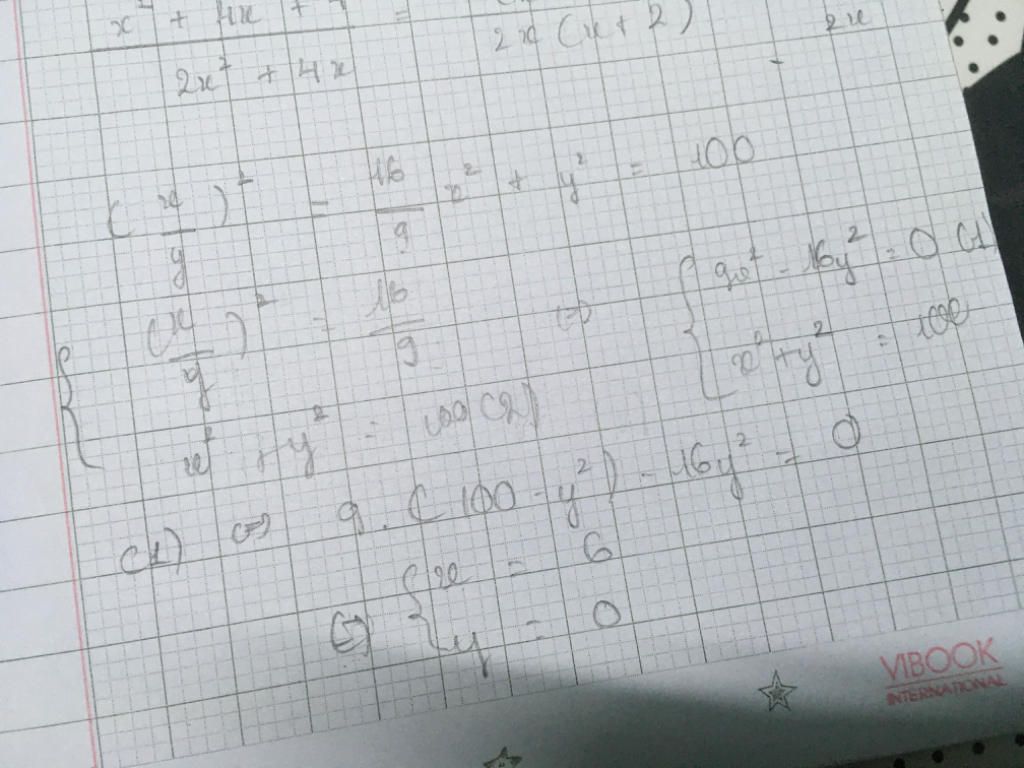 x² + 4x +
2x² + 4x = 2x (x+2) 2x
(x/y)² = 16/9 x² + y² = 100
{ (x/y)² = 16/9 <=> { 9x² - 16y² = 0 (1)
x² + y² = 100 (2) x² + y² = 100
(1) <=> 9. (100 - y²) - 16y² = 0
<=> { x = 6
y = 0
VIBOOK
INTERNATIONAL